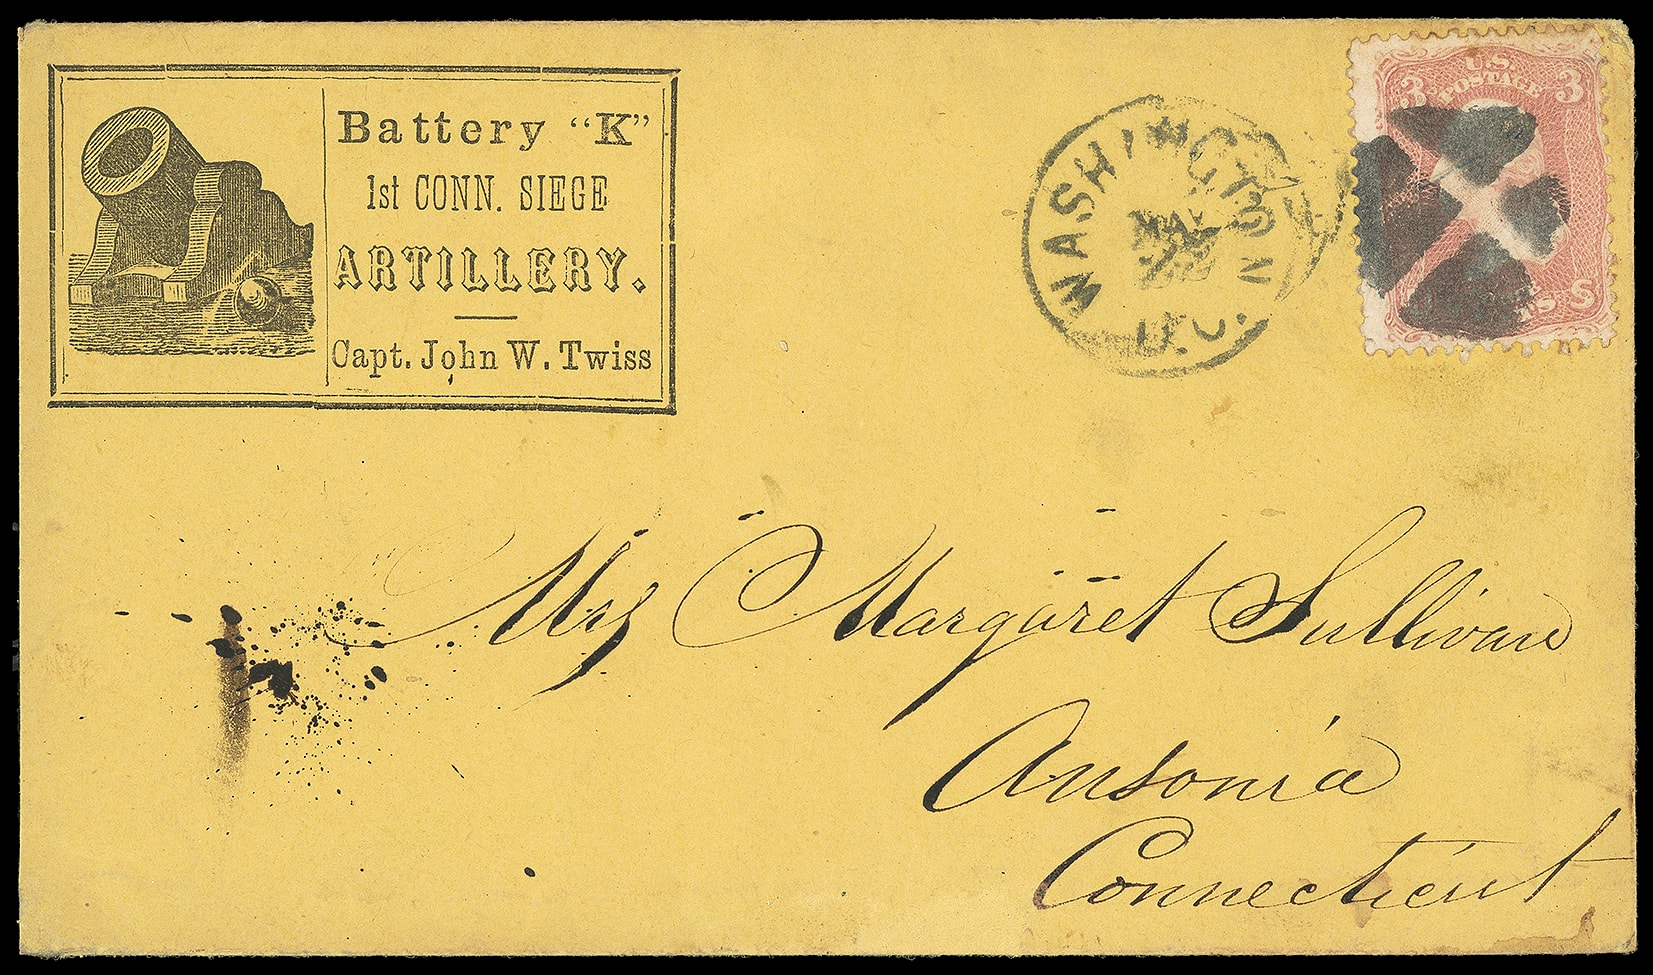 Battery "K"
1st CONN. SIEGE
ARTILLERY.
Capt. John W. Twiss
WASHINGTON D.C.
3 U.S. POSTAGE 3
Mrs Margaret Sullivan
Ansonia
Connecticut